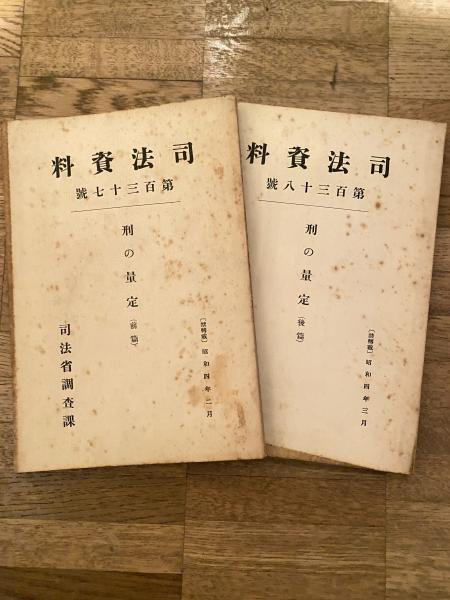 司法資料
第百三十七號
〔禁轉載〕昭和四年二月
刑の量定(前篇)
司法省調査課
司法資料
第百三十八號
〔禁轉載〕昭和四年三月
刑の量定(後篇)